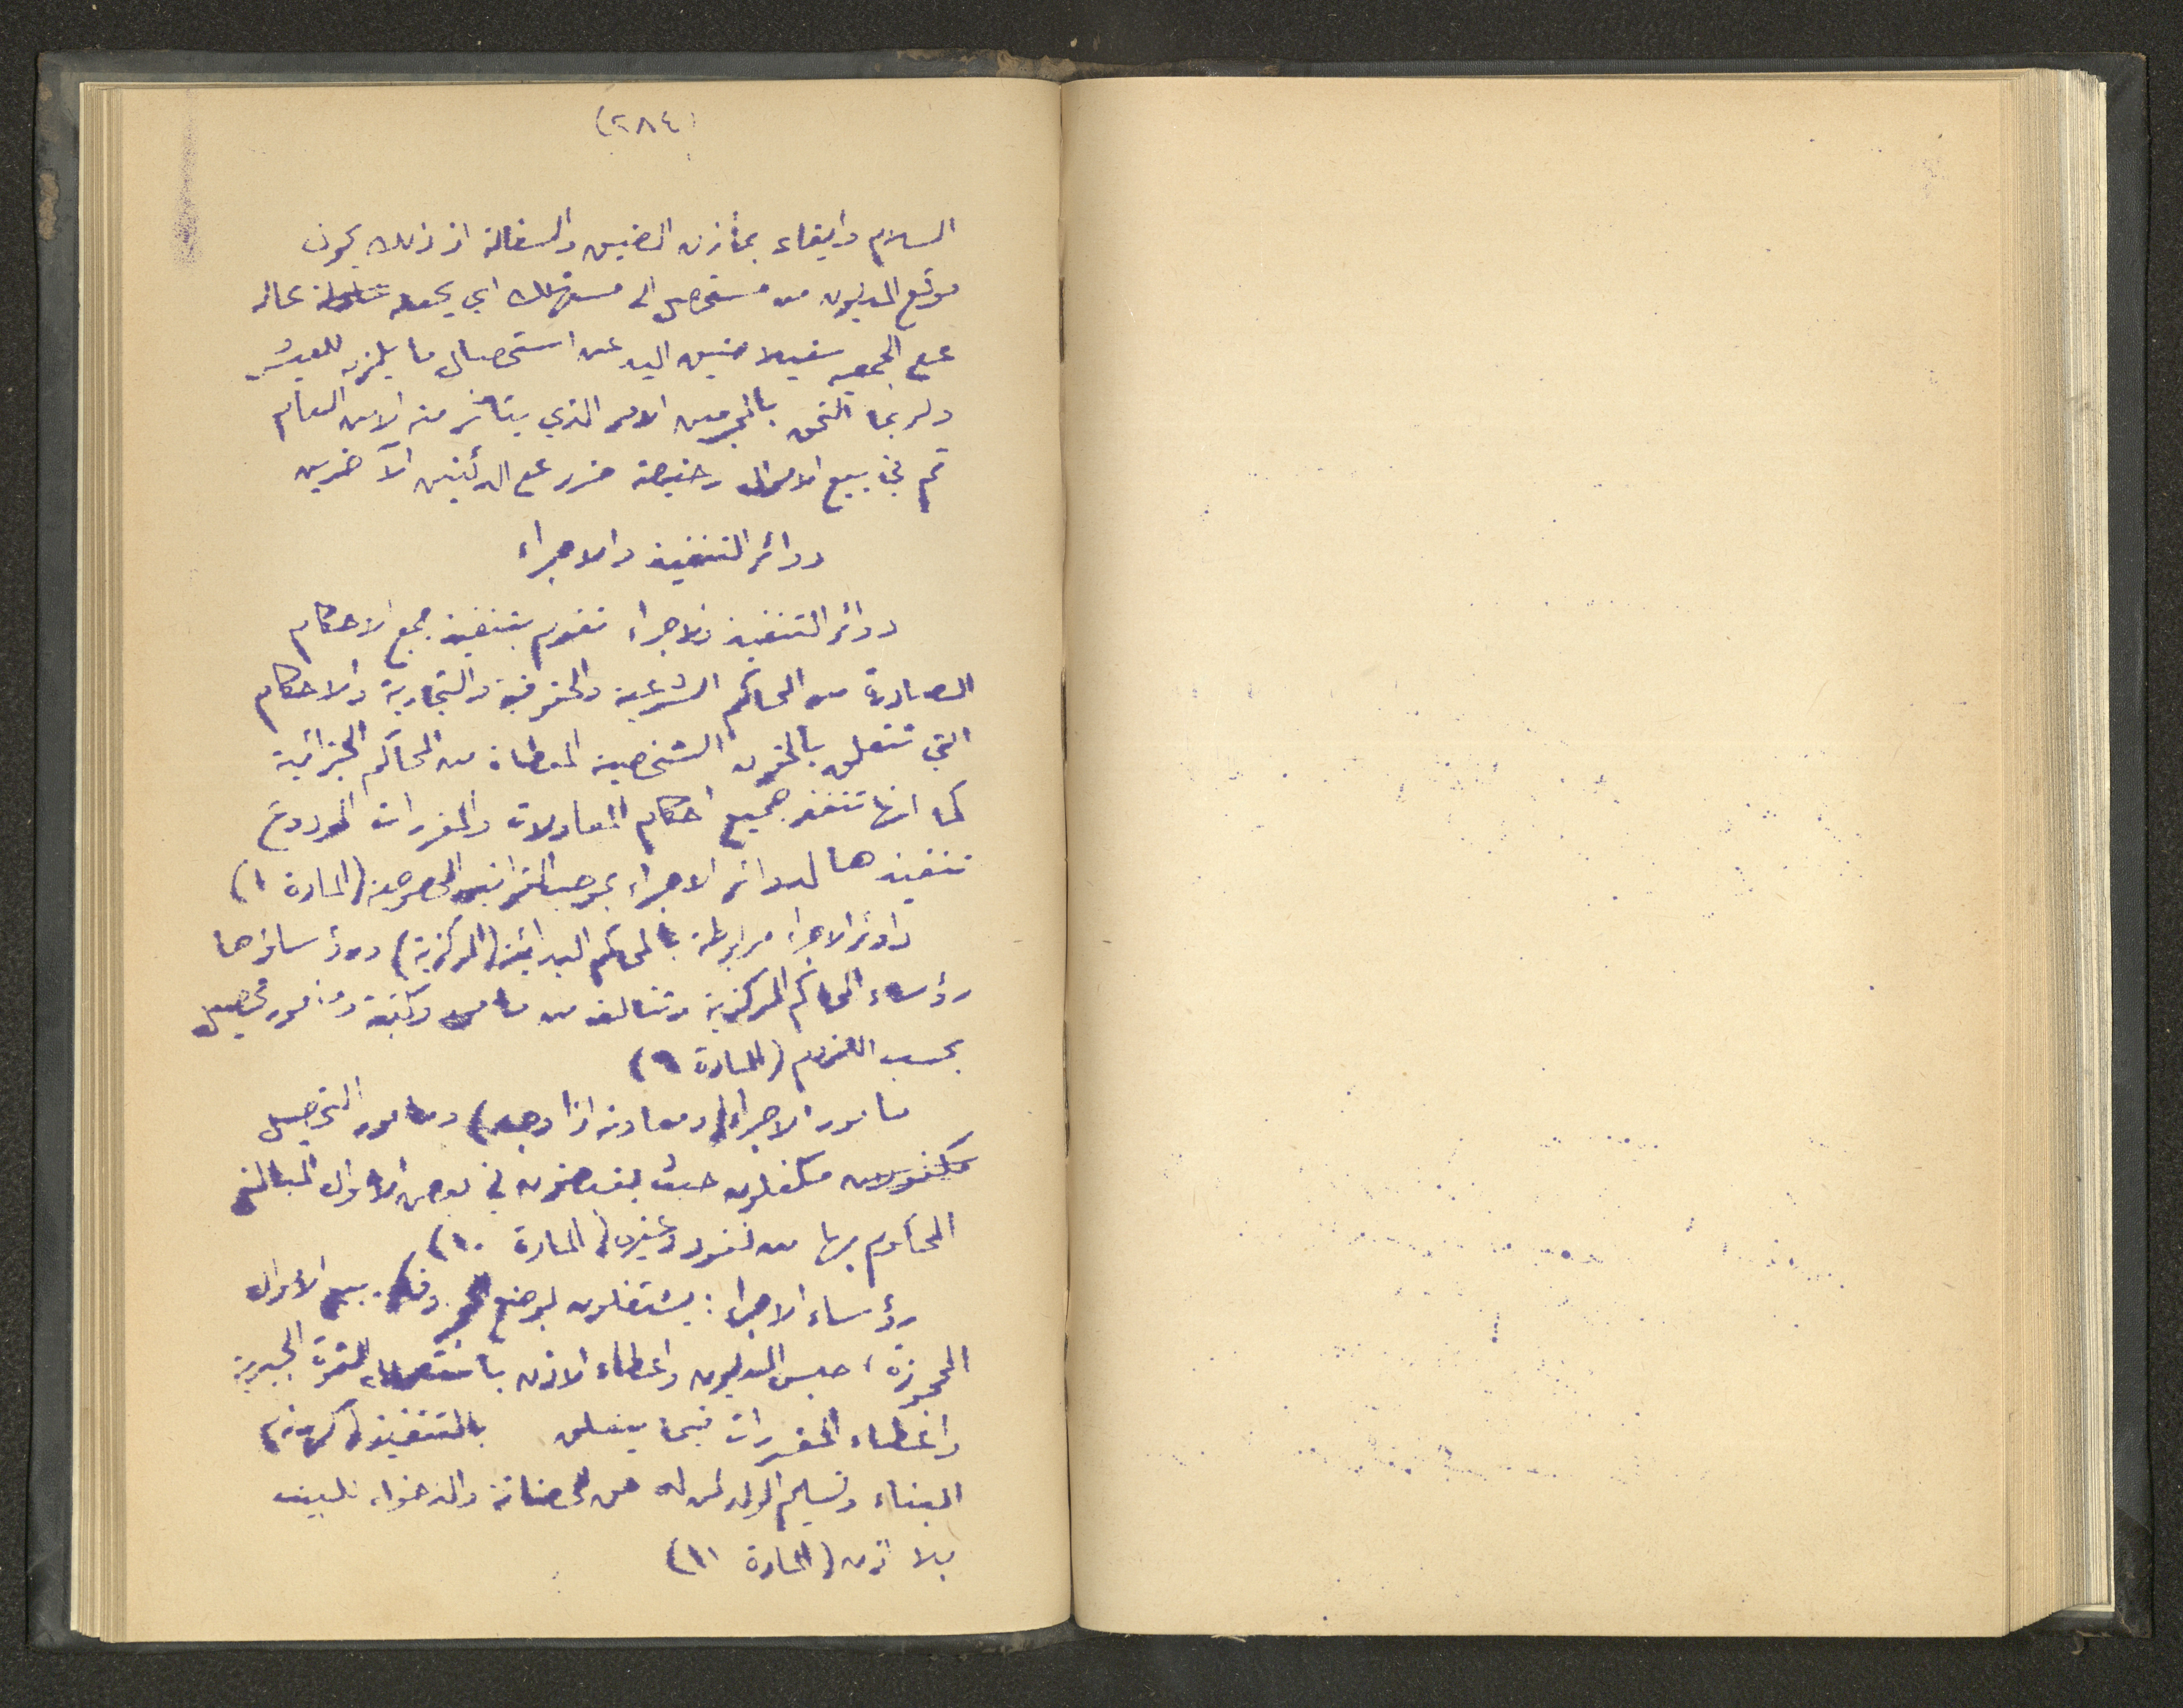 (٢٨٤)
السلام وايقاء بمأزن الضيق والسفالة اذ ذلك يحول
موقع المديون من مستحصل الى مستهلك اي يجعله عالة
على الجمعية ضيق اليد عن استحصال ما يلزم للعيش
ولربما التحق بالمجرمين الامر الذي يتأثر منه الامن العام
ثم في بيع الاموال رخيصة ضرر على الدائنين الآخرين
دوائر التنفيذ والاجراء
دوائر التنفيذ والاجراء تقوم بتنفيذ جميع الاحكام
الصادرة من المحاكم الشرعية والحقوقية والتجارية والاحكام
التي تتعلق بالحقوق الشخصية المعطاة من المحاكم الجزائية
كما انها تنفذ جميع احكام المعاولات والمقررات المودوع
تنفيذها لدوائر الاجراء بموجب القوانين المخصوصة (المادة ١)
دوائر الاجراء مرابطة بالمحاكم البدائية (المركزية) ورؤساؤها
رؤساء المحاكم المركزية وتتألف من مأمور وكتبة ومأمور تحصيل
بحسب اللزوم (المادة ٩)
مأمور الاجراء (ومعاونه اذا وجد) ومأمور التحصيل
مكفولون مكفلون حيث يقبضون في بعض الاحوال المبالغ
المحكوم بها من نقود وغيره (المادة ١٠)
رؤساء الاجراء : يشتغلون بوضع الحجز وفكه بيع الاموال
المحجوزة، حبس المديون واعطاء الاذن باستعمال القوة الجبرية
واعطاء المقررات فيما يتعلق بالتنفيذ (كهدم)
البناء وتسليم الولد لمن له حق الحضانة والدخول للبيت
بلا اذن (المادة ١١)